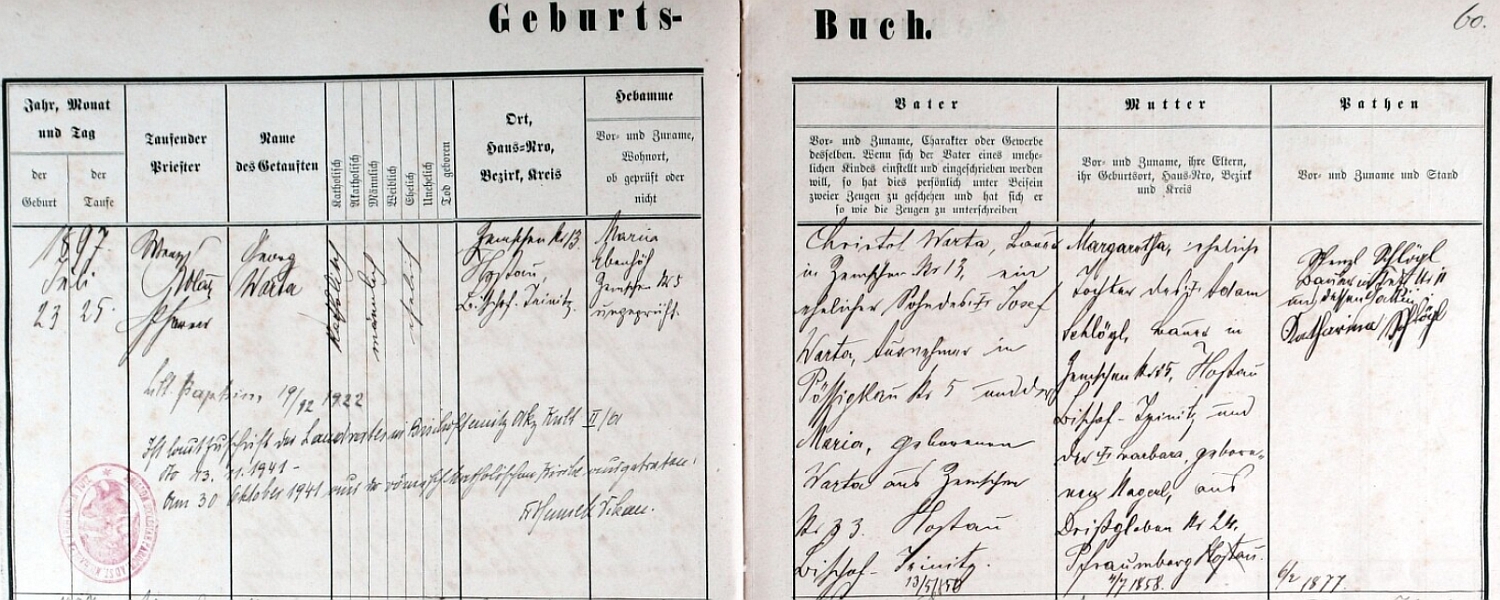 Geburts-
Buch.
60.
Jahr, Monat
und Tag
der
Geburt
der
Taufe
Taufender
Priester
Name
des Getauften
Katholisch
Akatholisch
Männlich
Weiblich
Ehelich
Unehelich
Tod geboren
Ort,
Haus=Nro,
Bezirk, Kreis
Hebamme
Vor- und Zuname,
Wohnort,
ob geprüft oder
nicht
1897.
Juli
23
25.
Wenzl
Pfarrer
Georg
Warta
katholisch
männlich
ehelich
Zemschen Nr 13.
Hostau
Bischof-Teinitz.
Maria
Ebenhöh
Zemschen Nr 5
ungeprüft.
Lit. Baptism. 19/12 1922
Ist laut Zuschrift des Landrates in Bischofteinitz Akz Kult II/a
dto 13. 11. 1941 -
am 30 Oktober 1941 aus der römisch katholischen Kirche ausgetreten.
Vater
Vor- und Zuname, Charakter oder Gewerbe
desselben. Wenn sich der Vater eines unehe-
lichen Kindes einstellt und eingeschrieben werden
will, so hat dies persönlich unter Beisein
zweier Zeugen zu geschehen und hat sich er
so wie die Zeugen zu unterschreiben
Christof Warta, Bauer
in Zemschen Nr 13, ein
ehelicher Sohn des † Josef
Warta, Ausnehmer in
Pössigkau Nr 5 und der
Maria, geborenen
Warta aus Zemschen
Nr 33. Hostau
Bischof-Teinitz.
13/5/850
Mutter
Vor- und Zuname, ihre Eltern,
ihr Geburtsort, Haus-Nro, Bezirk
und Kreis
Margaretha, eheliche
Tochter des † Adam
Schlögl, Bauer in
Zemschen Nr 25, Hostau
Bischof-Teinitz und
der † Barbara, gebore-
nen Nagerl, aus
Drißgloben Nr 24.
Pfraumberg Hostau.
4/7 1858.
Pathen
Vor- und Zuname und Stand
Wenzl Schlögl
Bauer in Nr 11
und dessen Gattin
Katharina Schlögl
6/2 1877.